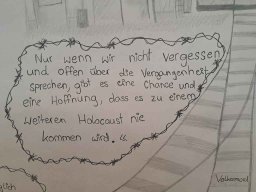 Nur wenn wir nicht vergessen
und offen über die Vergangenheit
sprechen, gibt es eine Chance und
eine Hoffnung, dass es zu einem
weiteren Holocaust nie
kommen wird."